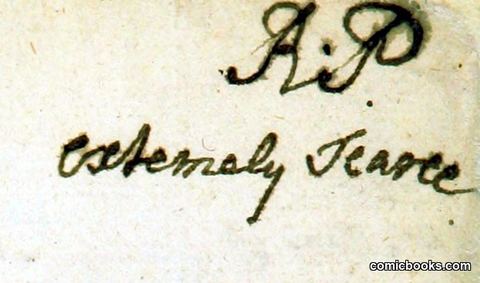 R.P
extemely Scarce
comicbooks.com